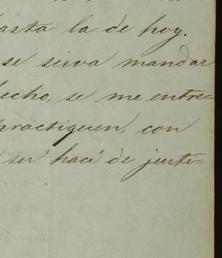 hasta la de hoy.
se sirva mandar
hecho, se me entre-
practiquen, con
ser hací de justi-